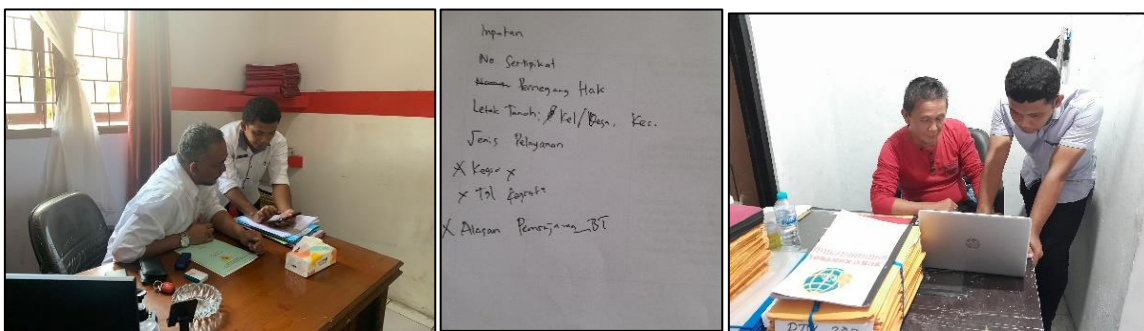 Inputan
No Sertipikat
Pemegang Hak
Letak Tanah; Kel/Desa, Kec.
Jenis Pelayanan
X X
X Tgl
X Alasan Peminjaman BT
hp